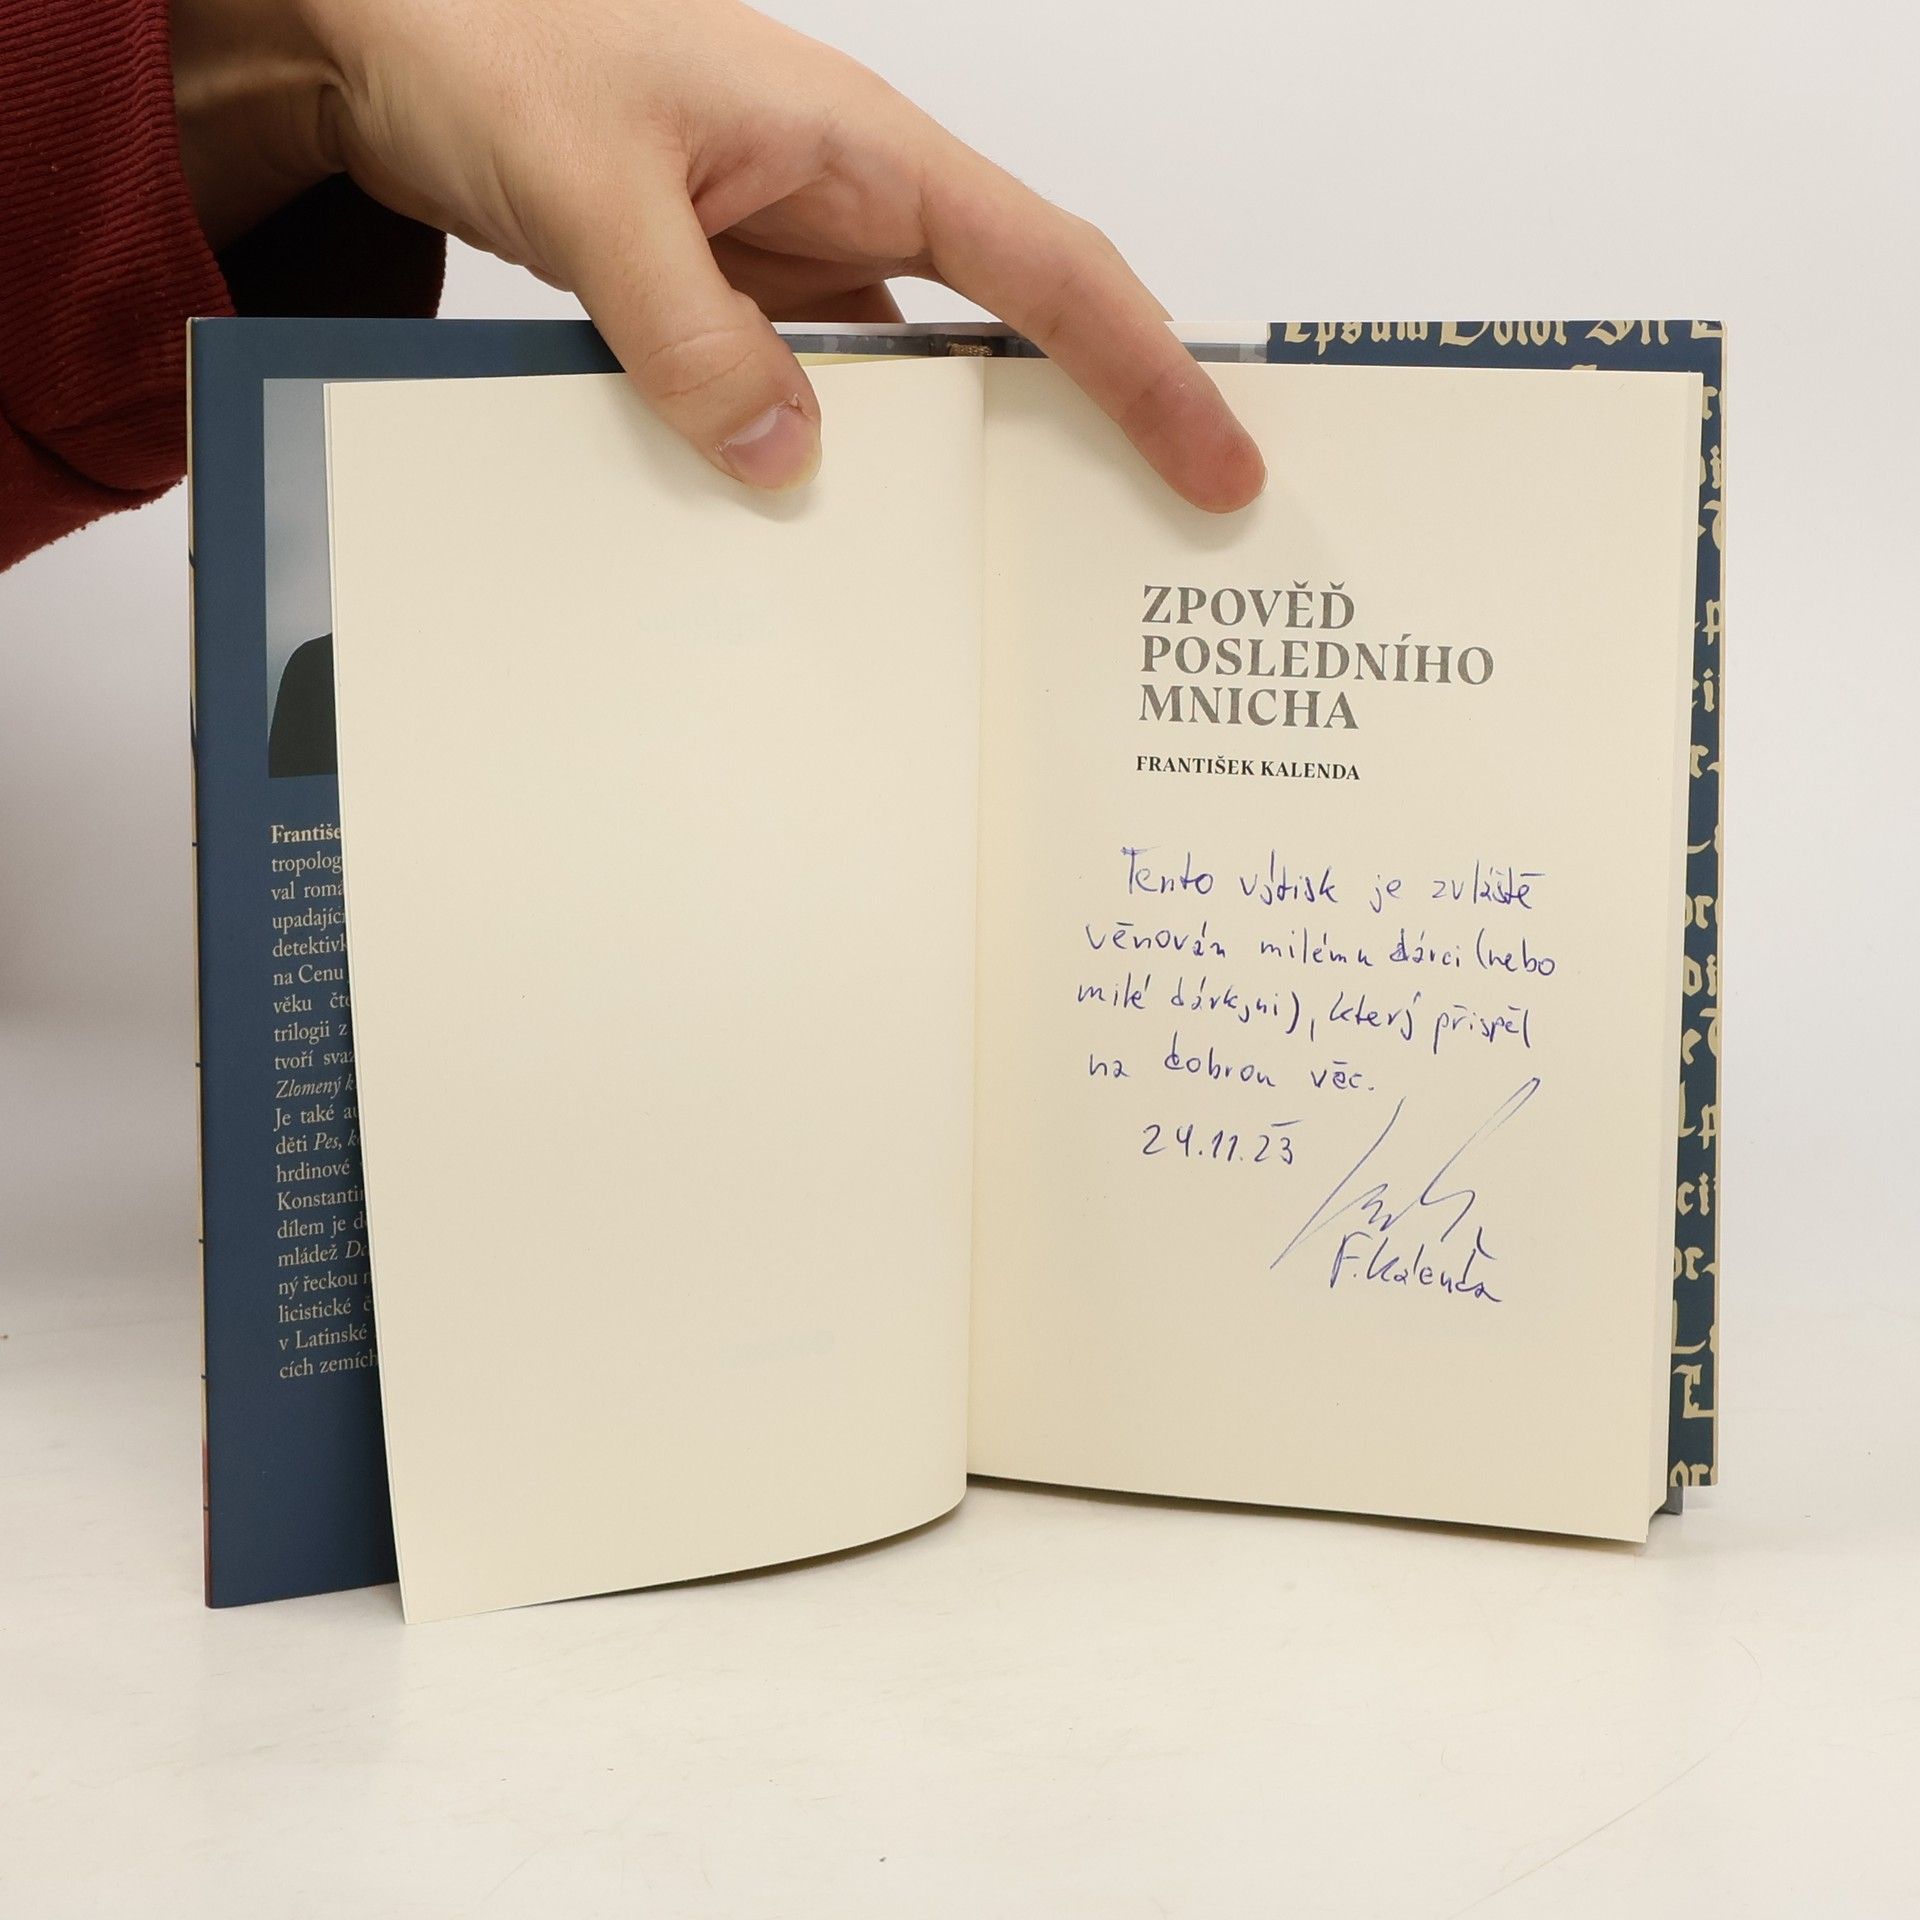 Františe
tropolog
val romá
upadajíc
detektivk
na Cenu
věku čte
trilogii z
tvoří svaz
Zlomený k
Je také au
děti Pes, k
hrdinové
Konstantin
dílem je d
mládež
ný řeckou
licistické č
v Latinské
cích zemích
Epsum Dolor Sit
ZPOVĚĎ
POSLEDNÍHO
MNICHA
FRANTIŠEK KALENDA
Tento výtisk je zvláště
věnován milému dárci (nebo
milé dárkyni), který přispěl
na dobrou věc.
24.11.23
F. Kalenda